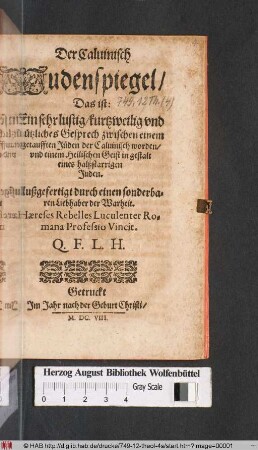 Der Caluinisch
Judenspiegel/
Das ist: 749.12 Th.(4)
Ein sehr lustig/kurtzweilig vnd
nützliches Gesprech zwischen einem
getaufften Jüden der Caluinisch worden/
vnd einem Heilischen Geist in gestalt
eines halßstarrigen
Juden.
Außgefertigt durch einen sonderba-
ren Liebhaber der Warheit.
Hæreses Rebelles Luculenter Ro-
mana Professio Vincit.
Q. F. L. H.
Getruckt
Im Jahr nach der Geburt Christi/
M. DC. VIII.
Herzog August Bibliothek Wolfenbüttel
Gray Scale
© HAB http://diglib.hab.de/drucke/749-12-theol-4s/start.htm?image=00001